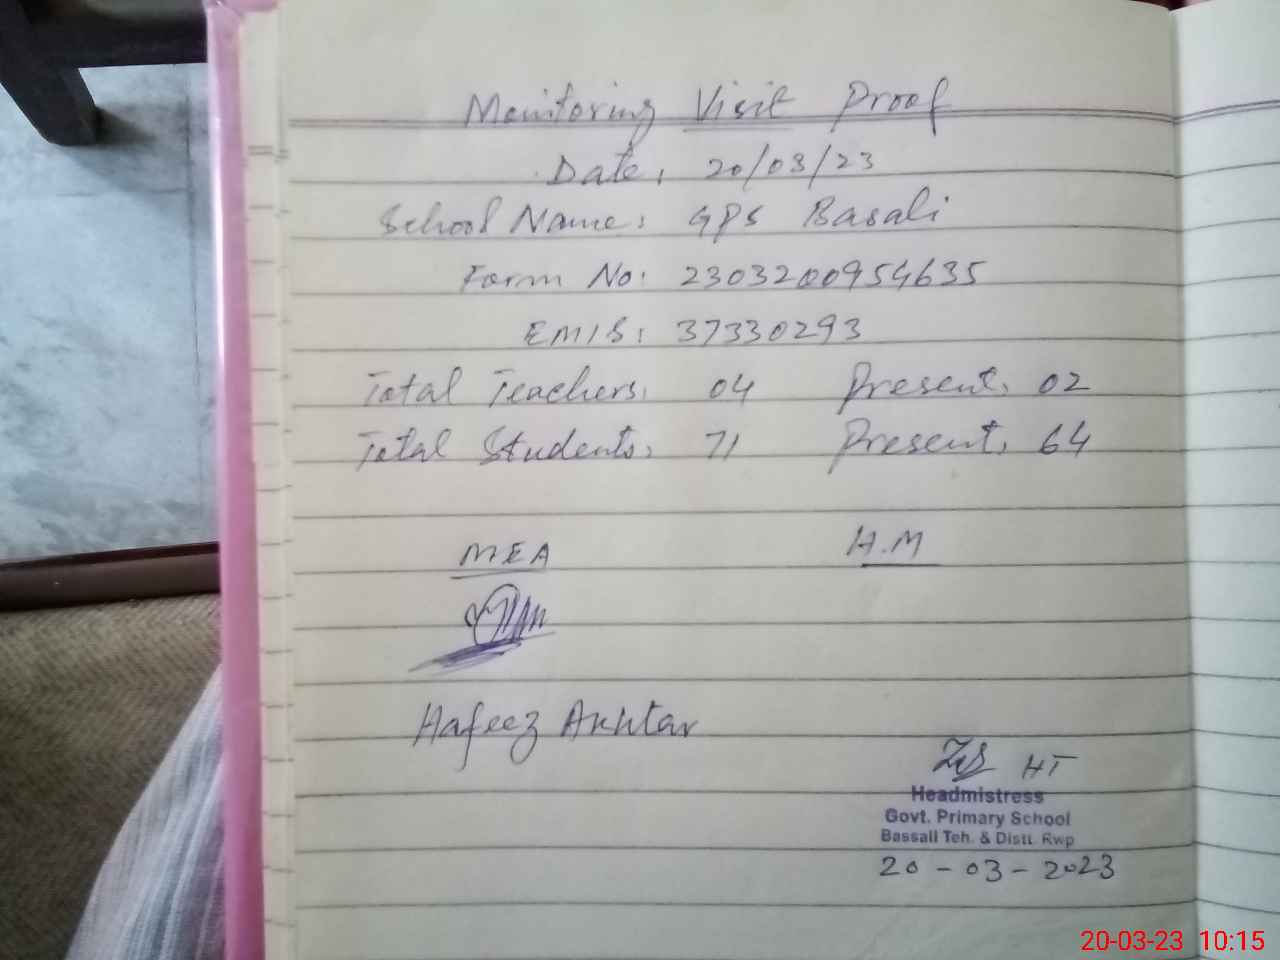 Monitoring Visit Proof
Date: 20/03/23
School Name: GPS Basali
Form No: 2303200954635
EMIS: 37330293
Total Teachers: 04 Present: 02
Total Students: 71 Present: 64
MEA H.M
Hafeez Akhtar
HT
Headmistress
Govt. Primary School
Bassali Teh. & Distt. Rwp
20-03-2023
20-03-23 10:15